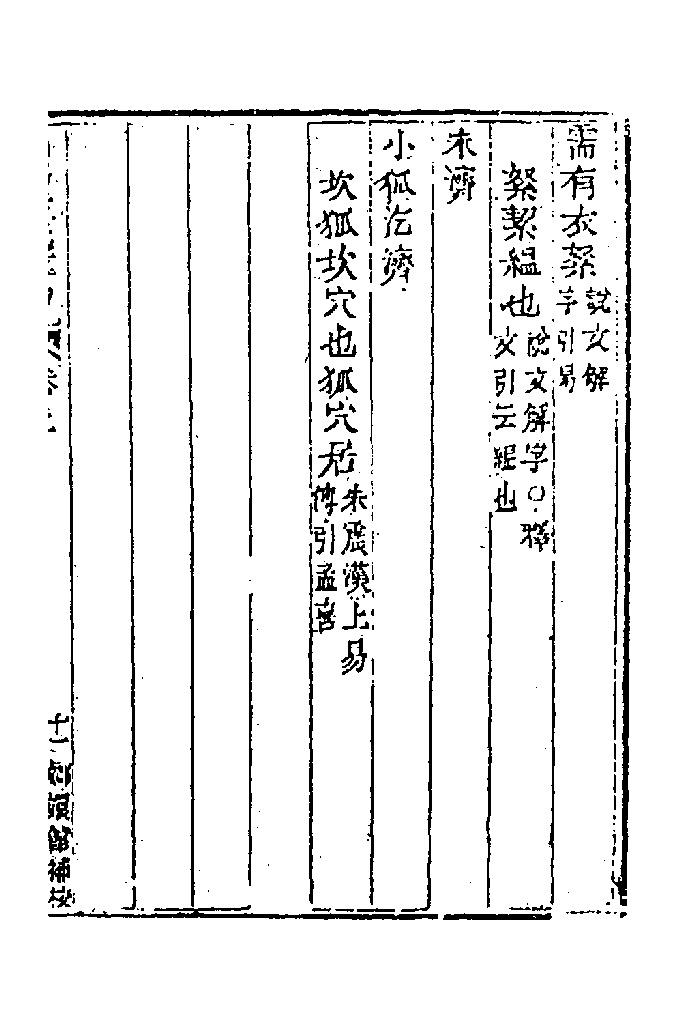 需有衣絮說文解
字引易
絮絜緼也說文解字○釋
文引云緼也
未濟
小狐汔濟
坎狐坎穴也狐穴居朱震漢上易
傳引孟喜
十一
嫏嬛館補校